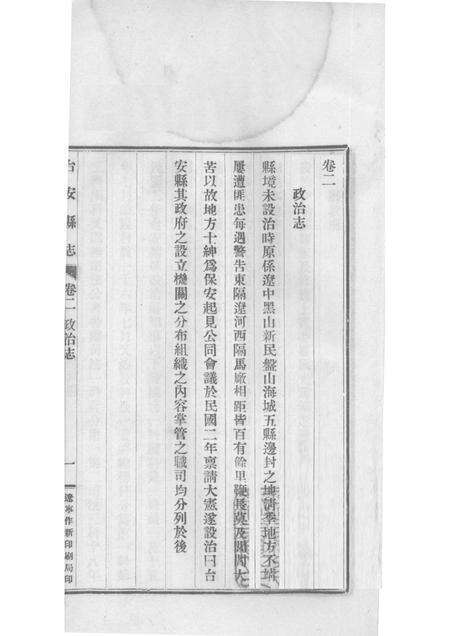 卷二
政治志
縣境未設治時原係遼中黑山新民盤山海城五縣邊封之地清季地方不靖
屢遭匪患每遇警告東隔遼河西隔馬廠相距皆百有餘里鞭長莫及閭閻大
苦以故地方士紳爲保安起見公同會議於民國二年禀請大憲遂設治曰台
安縣其政府之設立機關之分布組織之內容掌管之職司均分列於後
台安縣志 卷二 政治志 一 遼寧作新印刷局印